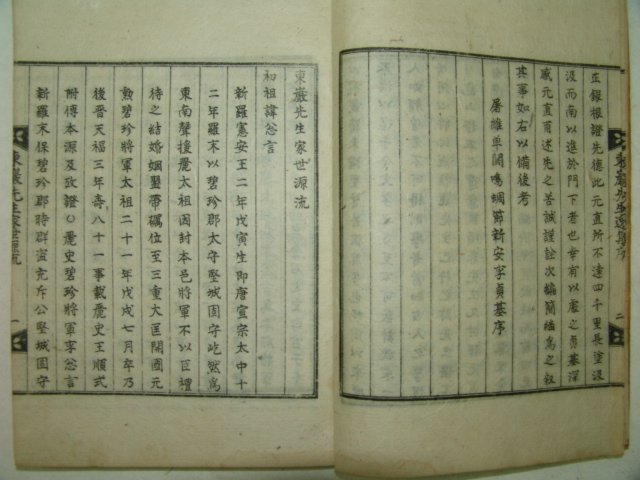 左銀根證先德此元直所不遠四千里長塗汲
汲而南以進於門下者也幸有以處之貞基深
感元直甫述先之苦誠謹詮次編簡緒爲之叙
其事如右以備後考
屠維單閼鳴蜩節新安李貞基序
東巖先生逸集序
二
東巖先生家世源流
初祖諱忩言
新羅憲安王二年戊寅生卽唐宣宗太中十
二年羅末以碧珍郡太守堅城固守屹然爲
東南聲援麗太祖因封本邑將軍不以臣禮
待之結婚姻璽帶礪位至三重大匡開國元
勲碧珍將軍太祖二十一年戊戌七月卒乃
後晉天福三年壽八十一事載麗史王順式
附傳本源及攷證○麗史碧珍將軍李忩言
新羅末保碧珍郡時群盜充斥公堅城固守
東巖先生家世源流
一